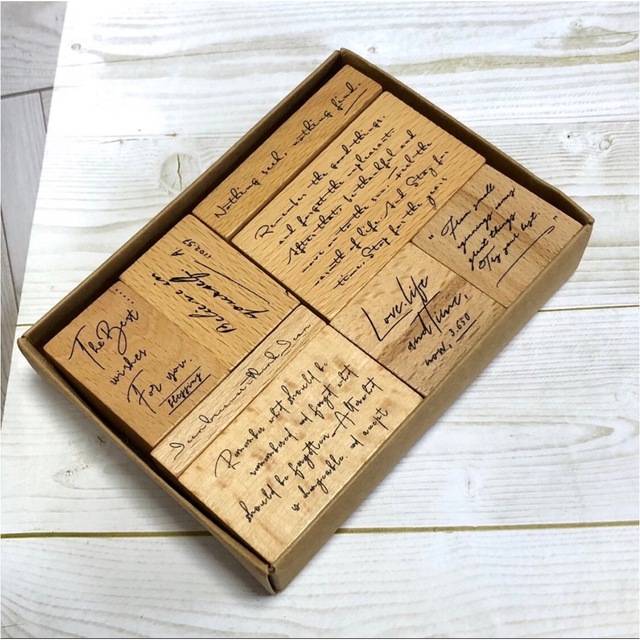 Nothing seek, nothing find.
Remember the good things.
and forget the unpleasant
After that, be thankful and
move onto the sun, feel the
of life. And Stay for
time. Stay for the year.
"From small
great things
Try your best"
Believe in
yourself
The Best
wishes
For you.
blessing
Love life
and time,
now, 3,650
Remember what should be
remembered, and forget what
should be forgotten. Alter what
is changeable, and accept